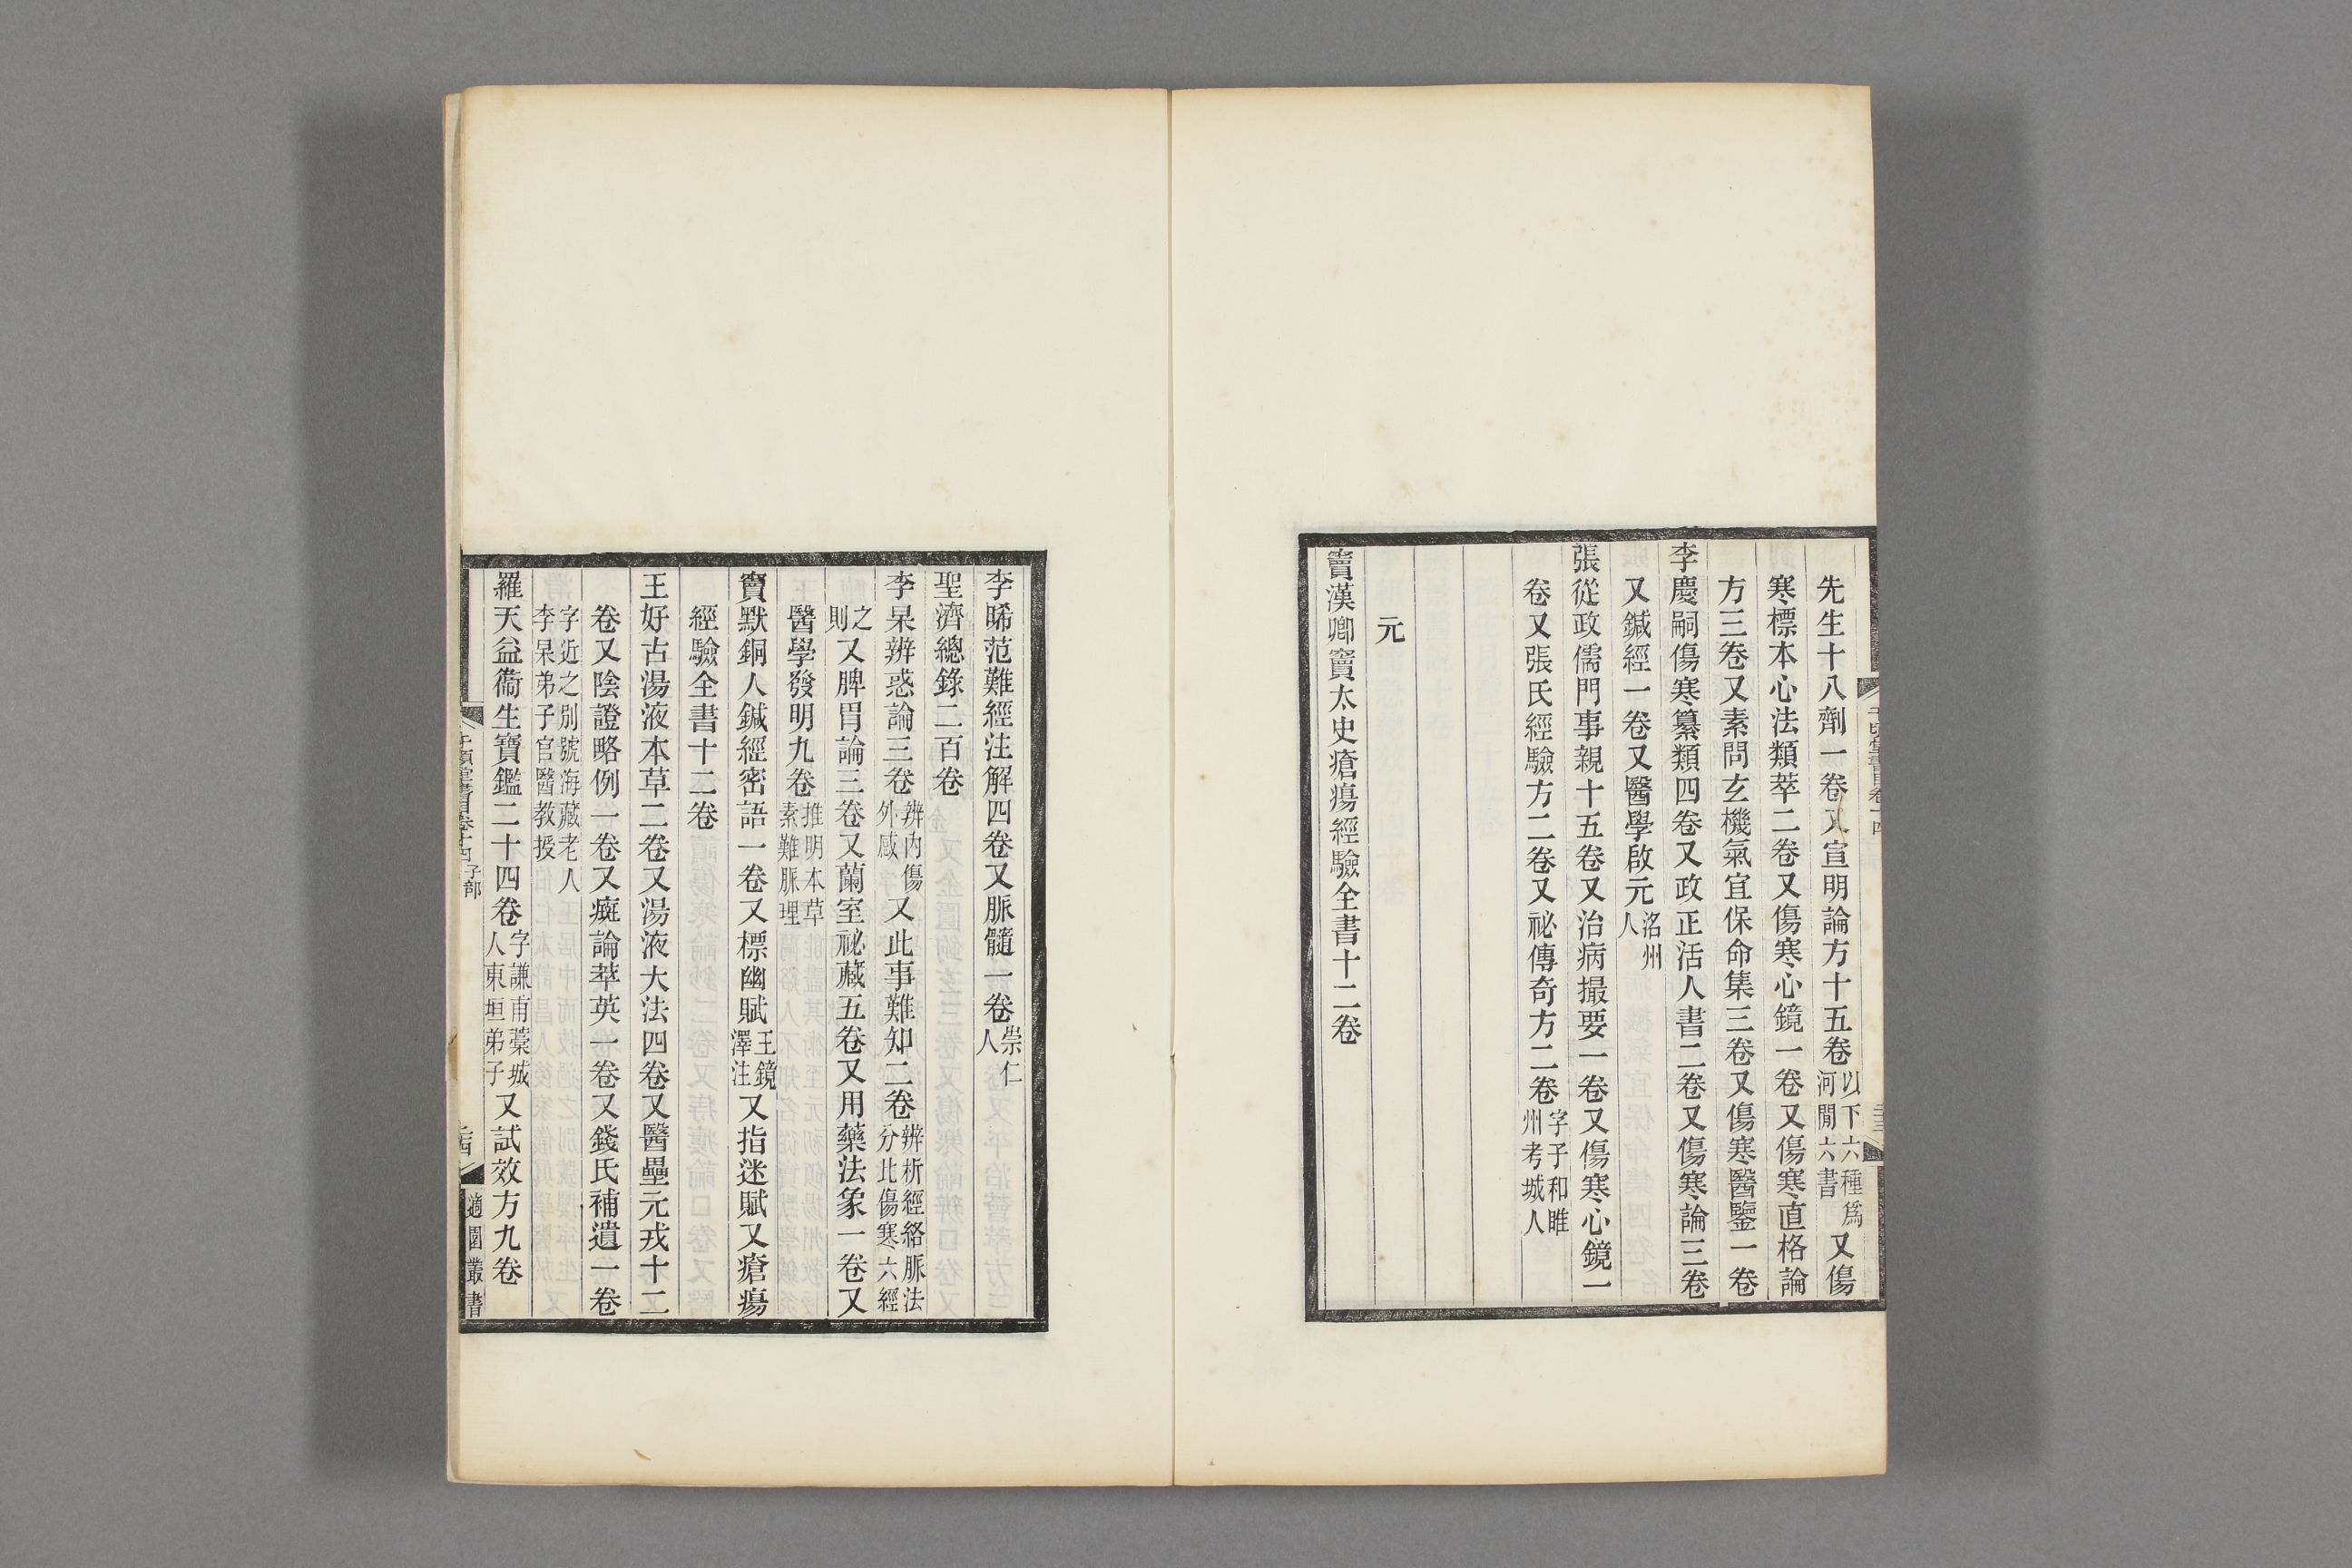 先生十八劑一卷又宣明論方十五卷以下六種爲河閒六書又傷
寒標本心法類萃二卷又傷寒心鏡一卷又傷寒直格論
方三卷又素問玄機氣宜保命集三卷又傷寒醫鑒一卷
李慶嗣傷寒纂類四卷又政正活人書二卷又傷寒論三卷
又鍼經一卷又醫學啟元洺州人
張從政儒門事親十五卷又治病撮要一卷又傷寒心鏡一
卷又張氏經驗方二卷又祕傳奇方二卷字子和睢州考城人
元
竇漢卿竇太史瘡瘍經驗全書十二卷
李晞范難經注解四卷又脈髓一卷崇仁人
聖濟總錄二百卷
李杲辨惑論三卷辨內傷外感又此事難知二卷辨析經絡脈法分此傷寒六經
之則又脾胃論三卷又蘭室祕藏五卷又用藥法象一卷又
醫學發明九卷推明本草素難脈理
竇默銅人鍼經密語一卷又標幽賦王鏡澤注又指迷賦又瘡瘍
經驗全書十二卷
王好古湯液本草二卷又湯液大法四卷又醫壘元戎十二
卷又陰證略例一卷又癍論萃英一卷又錢氏補遺一卷
字近之別號海藏老人李杲弟子官醫教授
羅天益衞生寶鑑二十四卷字謙甫藁城人東垣弟子又試效方九卷
千頃堂書目卷十四 子部
適園叢書